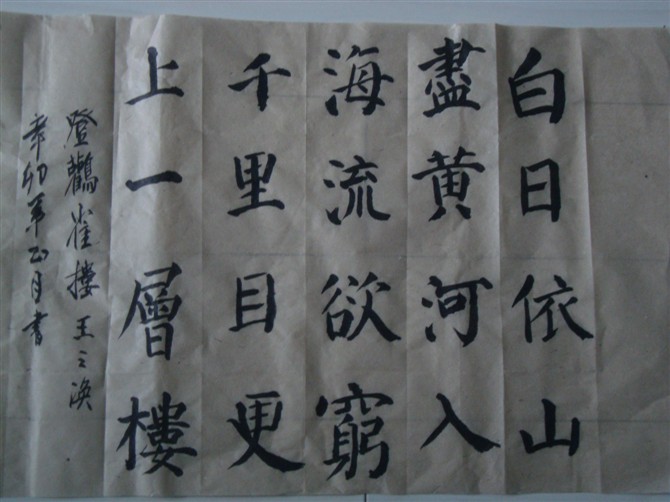 白日依山
盡黄河入
海流欲窮
千里目更
上一層樓
登鸛雀樓 王之渙
辛卯年正月書